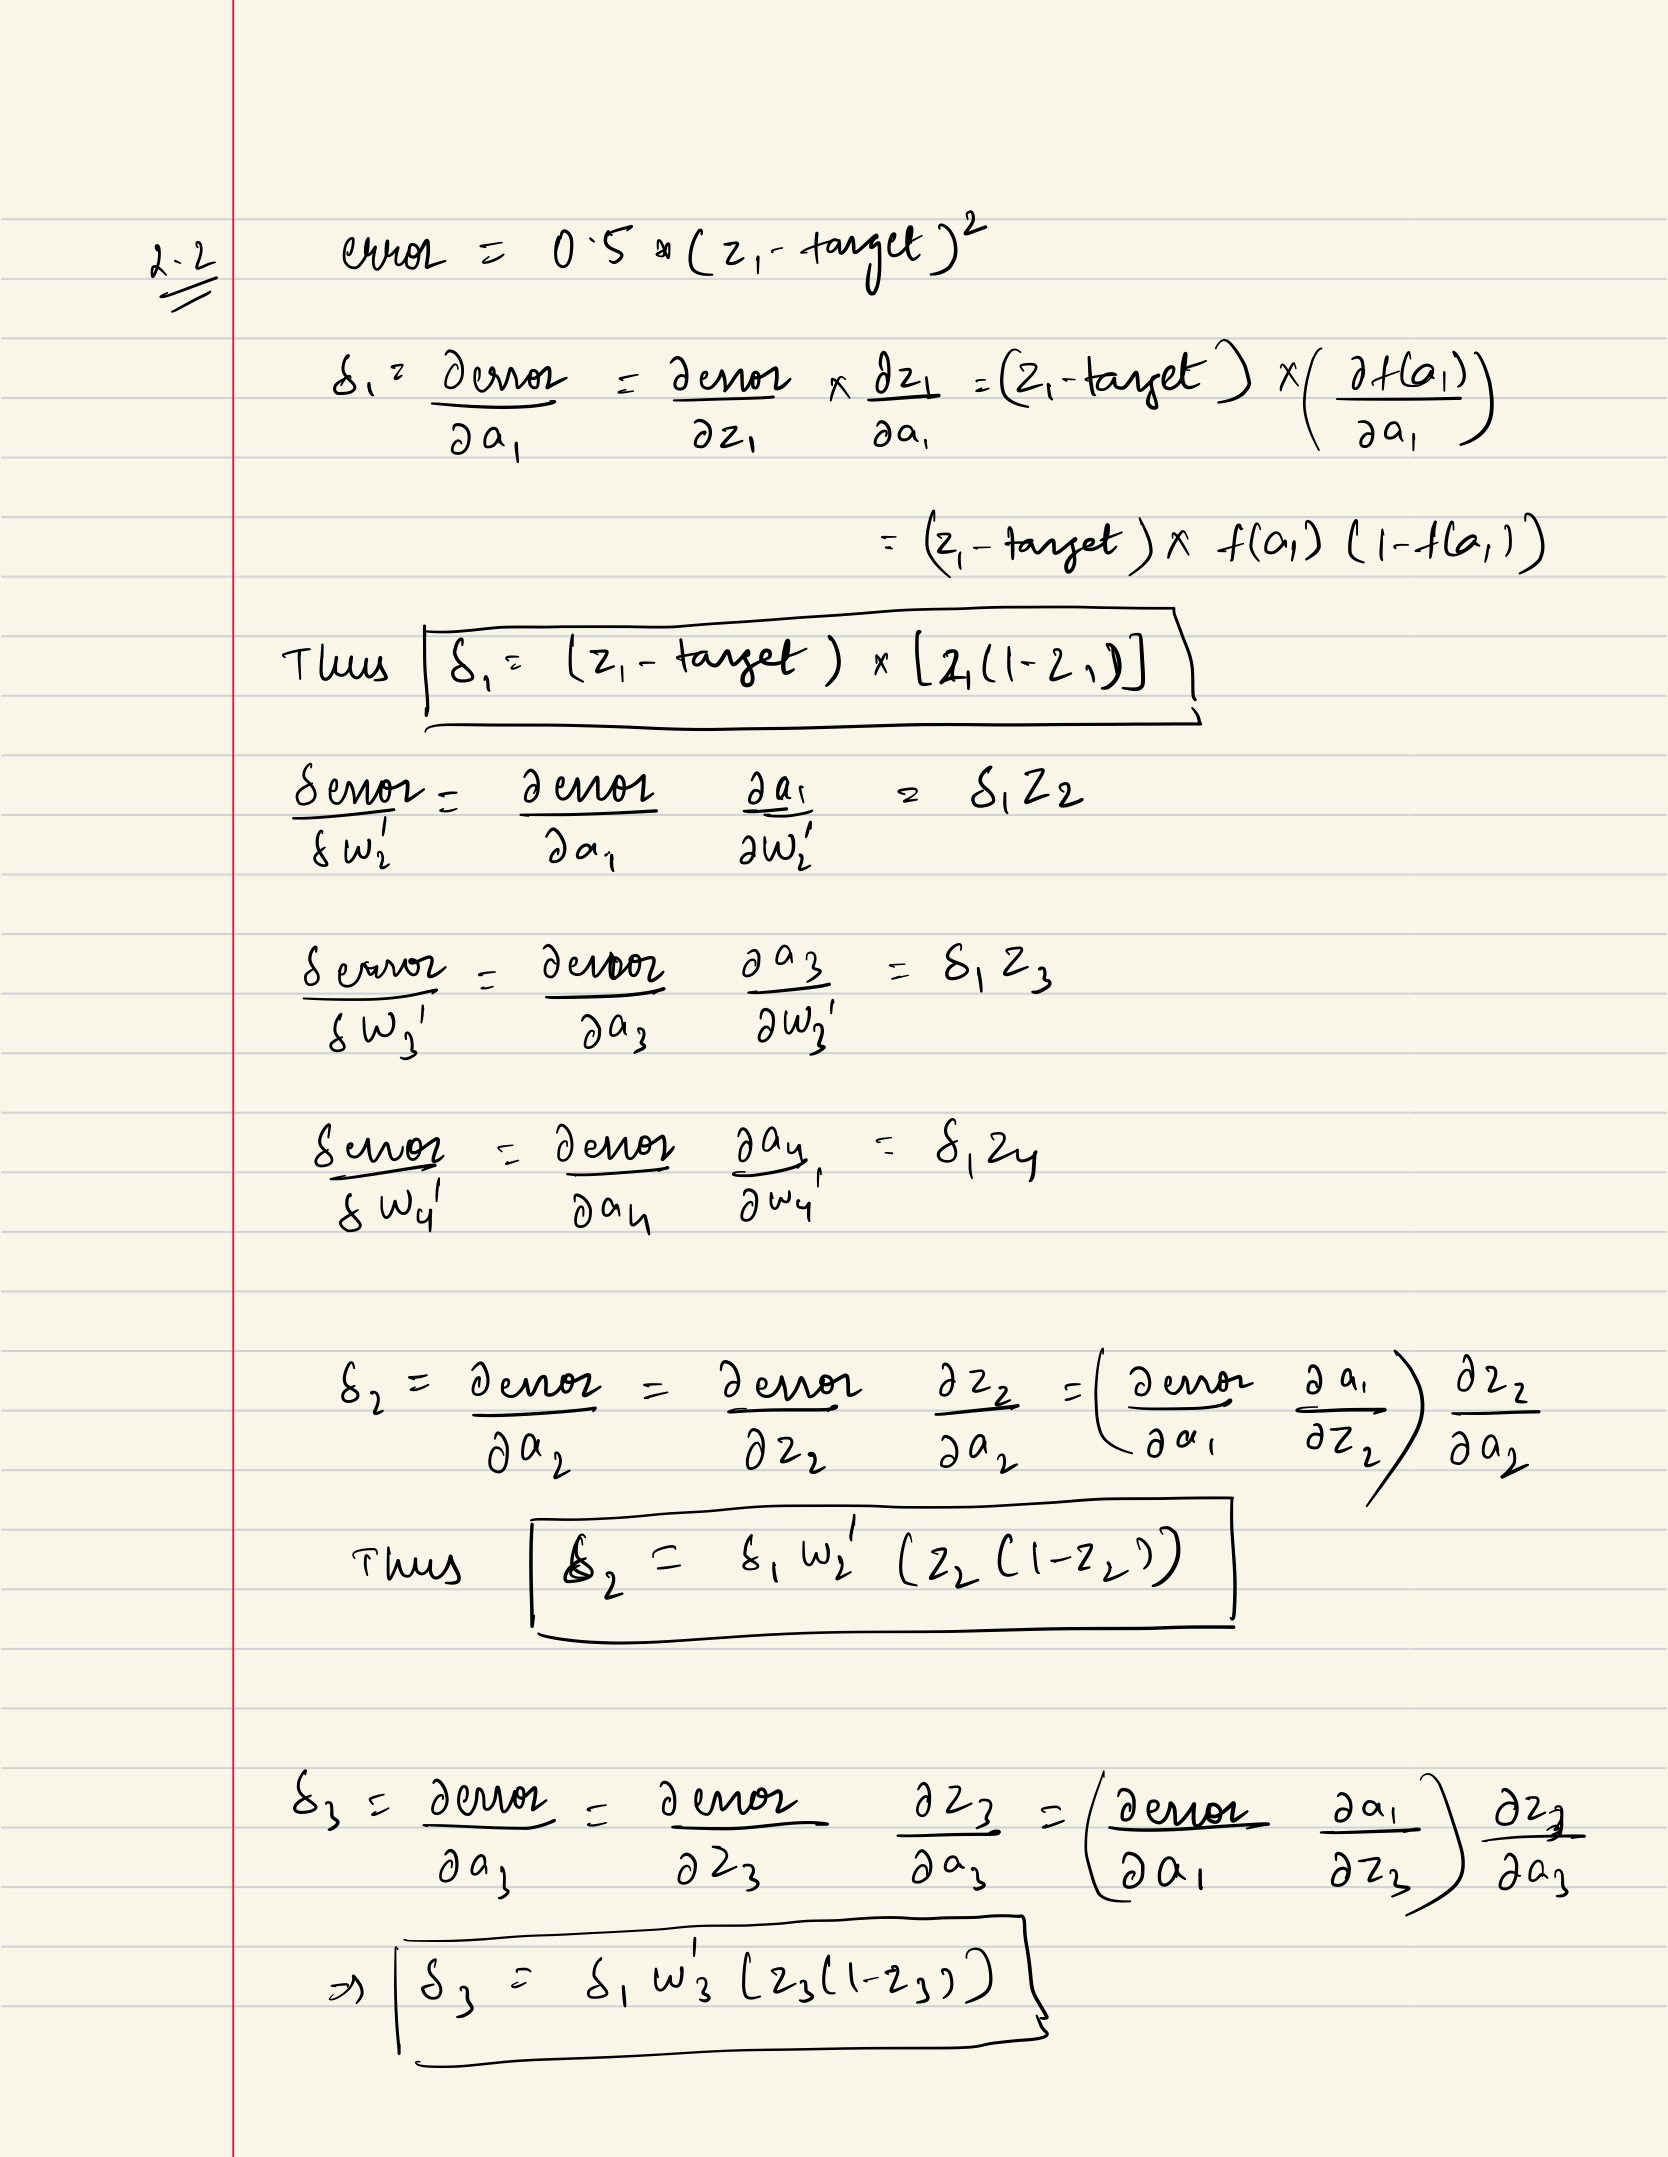 2.2 error = 0.5 * (z₁ - target)²
δ₁ = ∂error/∂a₁ = ∂error/∂z₁ × ∂z₁/∂a₁ = (z₁ - target) × (∂f(a₁)/∂a₁)
= (z₁ - target) × f(a₁) (1 - f(a₁))
Thus δ₁ = (z₁ - target) × [z₁(1 - z₁)]
δerror/δw₂' = ∂error/∂a₁ ∂a₁/∂w₂' = δ₁ z₂
δerror/δw₃' = ∂error/∂a₃ ∂a₃/∂w₃' = δ₁ z₃
δerror/δw₄' = ∂error/∂a₄ ∂a₄/∂w₄' = δ₁ z₄
δ₂ = ∂error/∂a₂ = ∂error/∂z₂ ∂z₂/∂a₂ = (∂error/∂a₁ ∂a₁/∂z₂) ∂z₂/∂a₂
Thus δ₂ = δ₁ w₂' (z₂ (1 - z₂))
δ₃ = ∂error/∂a₃ = ∂error/∂z₃ ∂z₃/∂a₃ = (∂error/∂a₁ ∂a₁/∂z₃) ∂z₃/∂a₃
⇒ δ₃ = δ₁ w₃' (z₃(1 - z₃))